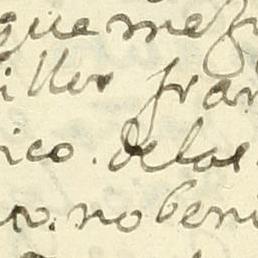 que me fr
illos fran
ico. de las
ro. no beni